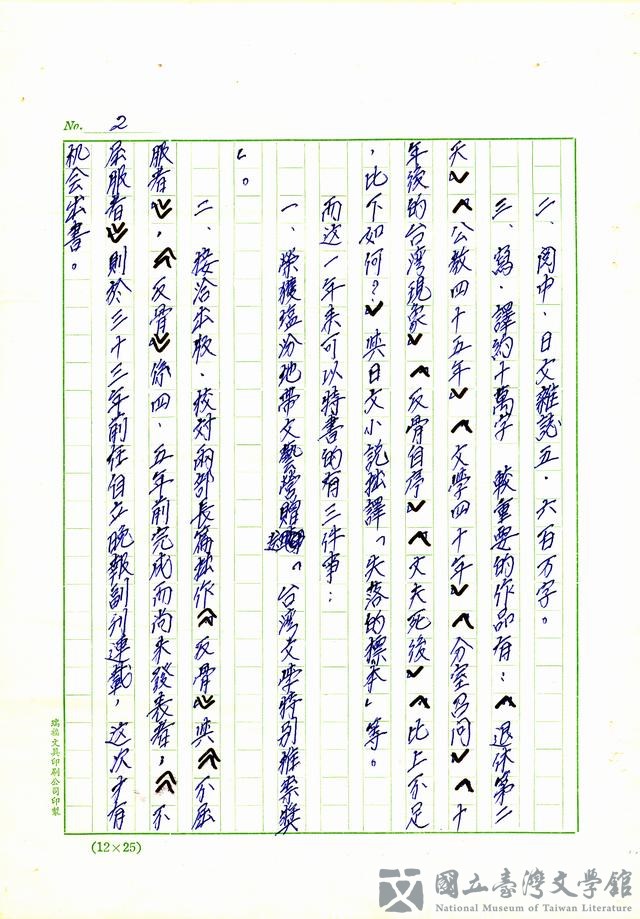 No. 2
二、閱中、日文雜誌五、六百万字。
三、寫、譯約十萬字 較重要的作品有:〈退休第二
天〉〈公教四十五年〉〈文學四十年〉〈分室召问〉〈十
年後的台湾現象〉〈反骨自序〉〈丈夫死後〉〈比上不足
,比下如何?〉與日文小說拙譯「失落的標本」等。
而这一年来可以特書的有三件事:
一、榮獲塩分地帶文藝營贈「台湾文学特別推崇獎
」。
二、接洽出版、校对兩部長篇拙作《反骨》與《不屈
服者》,《反骨》係四、五年前完成而尚未發表者,《不
屈服者》則於三十三年前在自立晚報副刊連載,这次才有
机会出書。
瑞福文具印刷公司印製
(12×25)
國立臺灣文學館
National Museum of Taiwan Literature